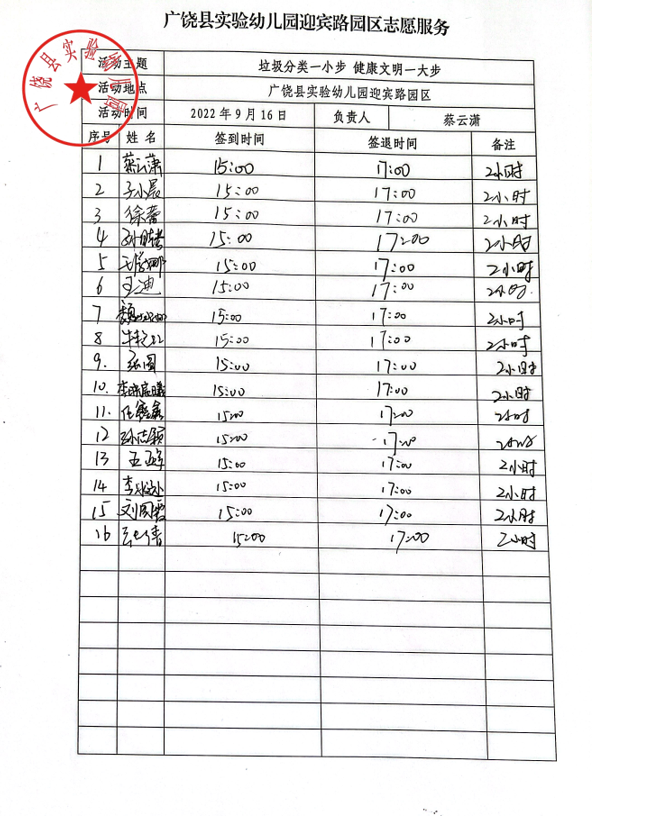 广饶县实验幼儿园迎宾路园区志愿服务
广饶县实验幼儿园
活动主题 垃圾分类一小步 健康文明一大步
活动地点 广饶县实验幼儿园迎宾路园区
活动时间 2022年9月16日 负责人 蔡云潇
序号 姓名 签到时间 签退时间 备注
1 蔡云潇 15:00 17:00 2小时
2 15:00 17:00 2小时
3 徐蕾 15:00 17:00 2小时
4 15:00 17:00 2小时
5 15:00 17:00 2小时
6 王迪 15:00 17:00 2小时
7 15:00 17:00 2小时
8 15:00 17:00 2小时
9. 张圆 15:00 17:00 2小时
10. 15:00 17:00 2小时
11. 任鑫鑫 15:00 17:00 2小时
12 孙志颖 15:00 17:00 2小时
13 15:00 17:00 2小时
14 15:00 17:00 2小时
15 刘国霞 15:00 17:00 2小时
16 15:00 17:00 2小时